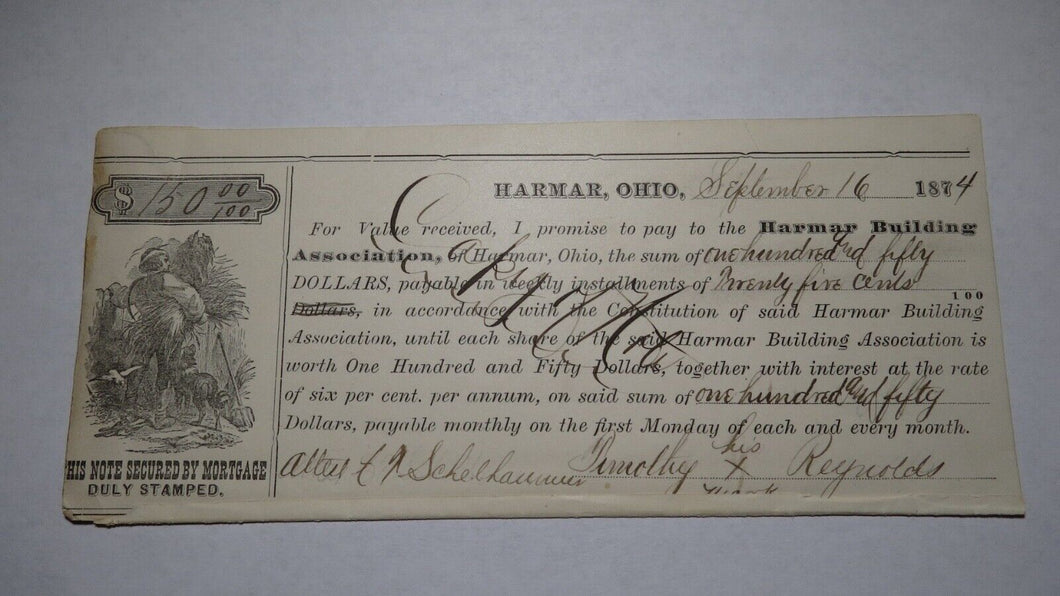 $ 150 00/100
HARMAR, OHIO, September 16 1874
For Value received, I promise to pay to the Harmar Building
Association, of Harmar, Ohio, the sum of one hundred and fifty
DOLLARS, payable in weekly installments of Twenty five cents
100
Dollars, in accordance with the Constitution of said Harmar Building
Association, until each share of the said Harmar Building Association is
worth One Hundred and Fifty Dollars, together with interest at the rate
of six per cent. per annum, on said sum of one hundred and fifty
Dollars, payable monthly on the first Monday of each and every month.
HIS NOTE SECURED BY MORTGAGE
DULY STAMPED.
Attest Schelhammer
his
Timothy X Reynolds
mark